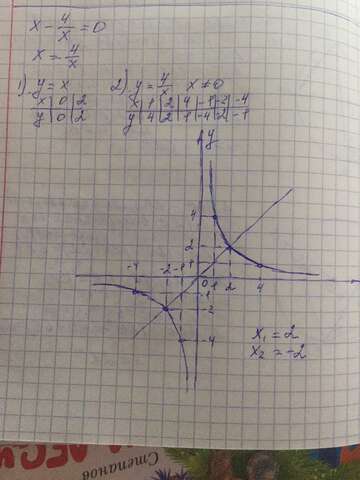 x - 4/x = 0
x = 4/x
1) y = x
x | 0 | 2
y | 0 | 2
2) y = 4/x x ≠ 0
x | 1 | 2 | 4 | -1 | -2 | -4
y | 4 | 2 | 1 | -4 | -2 | -1
y
4
2
1
-4 -2 -1 0 1 2 4
-1
-2
-4
x₁ = 2
x₂ = -2
Степанов